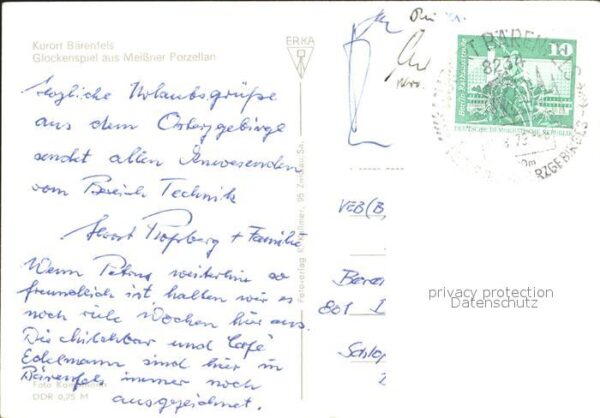 Kurort Bärenfels
Glockenspiel aus Meißner Porzellan
ERKA
Herzliche Urlaubsgrüße
aus dem Osterzgebirge
sendet allen Anwesenden
vom Bereich Technik
Horst + Familie
Wenn Petrus weiterhin so
freundlich ist, halten wir es
noch viele Wochen hier aus.
Die und Café
Edelmann sind hier in
Bärenfels immer noch
ausgezeichnet.
Foto
DDR 0,25 M
Fotoverlag K. 95 Zwickau/Sa.
10
DEUTSCHE DEMOKRATISCHE REPUBLIK
KURORT BÄRENFELS
8234
ERZGEBIRGE
VEB (B
801
privacy protection
Datenschutz